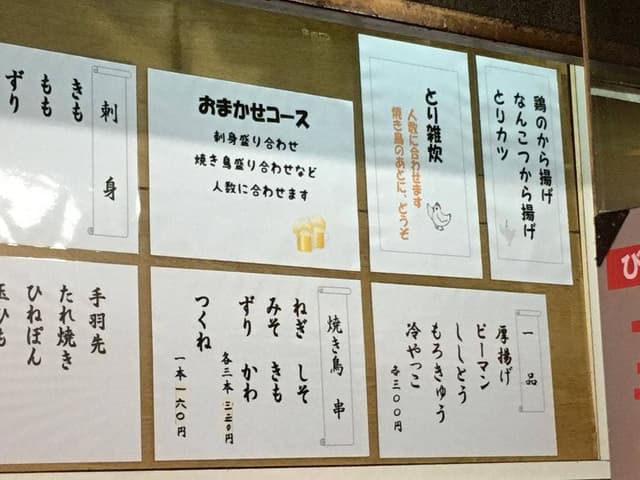 刺身
きも
もも
ずり
おまかせコース
刺身盛り合わせ
焼き鳥盛り合わせなど
人数に合わせます
とり雑炊
人数に合わせます
焼き鳥のあとに、どうぞ
鶏のから揚げ
なんこつから揚げ
とりカツ
手羽先
たれ焼き
ひねぽん
玉ひも
焼き鳥 串
ねぎ しそ
みそ きも
ずり かわ
各三本 三三〇円
つくね
一本一六〇円
一品
厚揚げ
ピーマン
ししとう
もろきゅう
冷やっこ
各三〇〇円